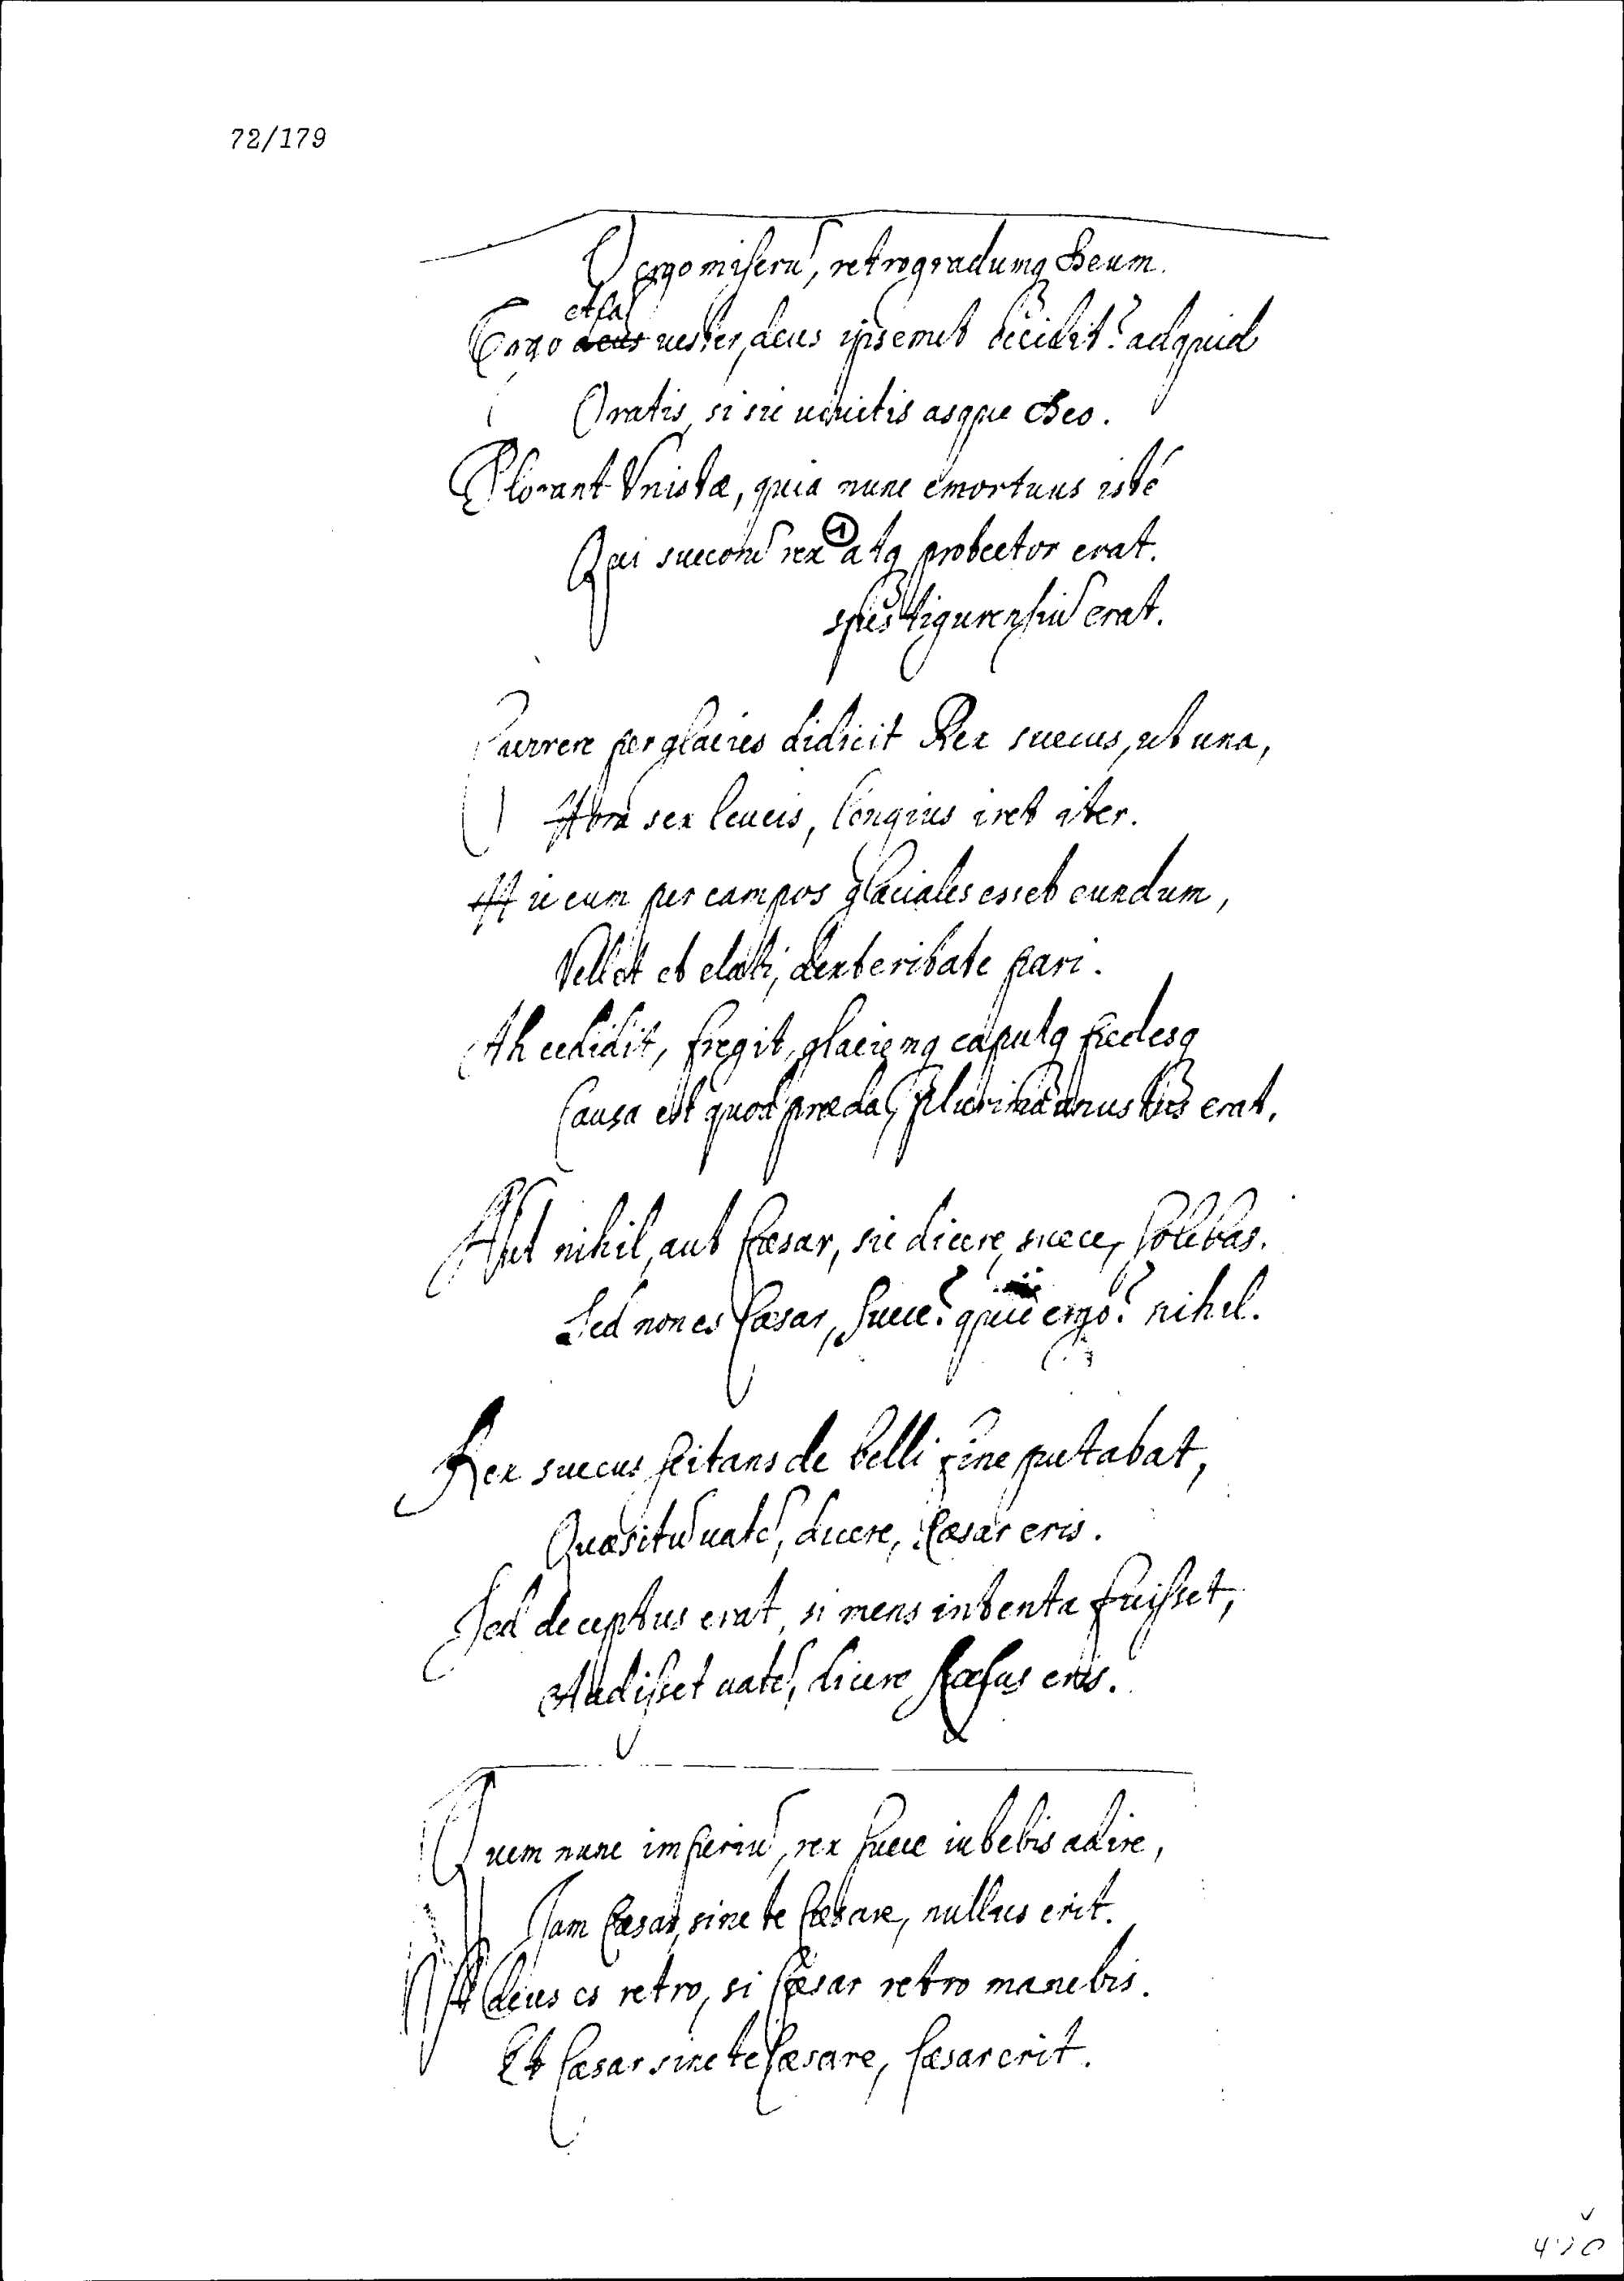 72/179
O ergo miserũ, retrogradumq Deum.
et sal
Ergo deus uester, deus ipsemet occidit? ad quid
Oratis, si sic uiuitis absque Deo.
Plorant Vnistæ, quia nunc emortuus iste
Qui suecorũ rex 1 atq protector erat.
spes tigurensiũ erat.
Currere per glacies didicit Rex suecus, ut una,
Hora sex leucis, longius iret iter.
Hic cum per campos glaciales esset eundum,
Vellet et elabi, dexteritate pari.
Ah cecidit, fregit, glaciemq caputq pedesq
Causa est quod præda, plurima onustus erat.
Aut nihil, aut Cæsar, sic dicere, suece, solebas.
Sed non es Cæsar, suece? quid ergo? nihil.
Rex suecus scitans de belli fine putabat,
Quæsitũ uatẽ, dicere, Cæsar eris.
Sed deceptus erat, si mens intenta fuisset,
Audisset uatẽ, dicere Cæsus eris.
Quem nunc imperiũ, rex suece iubebis adire,
Nam Cæsar, sine te Cæsare, nullus erit.
At deus es retro, si Cæsar retro manebis.
Et Cæsar sine te Cæsare, Cæsar erit.